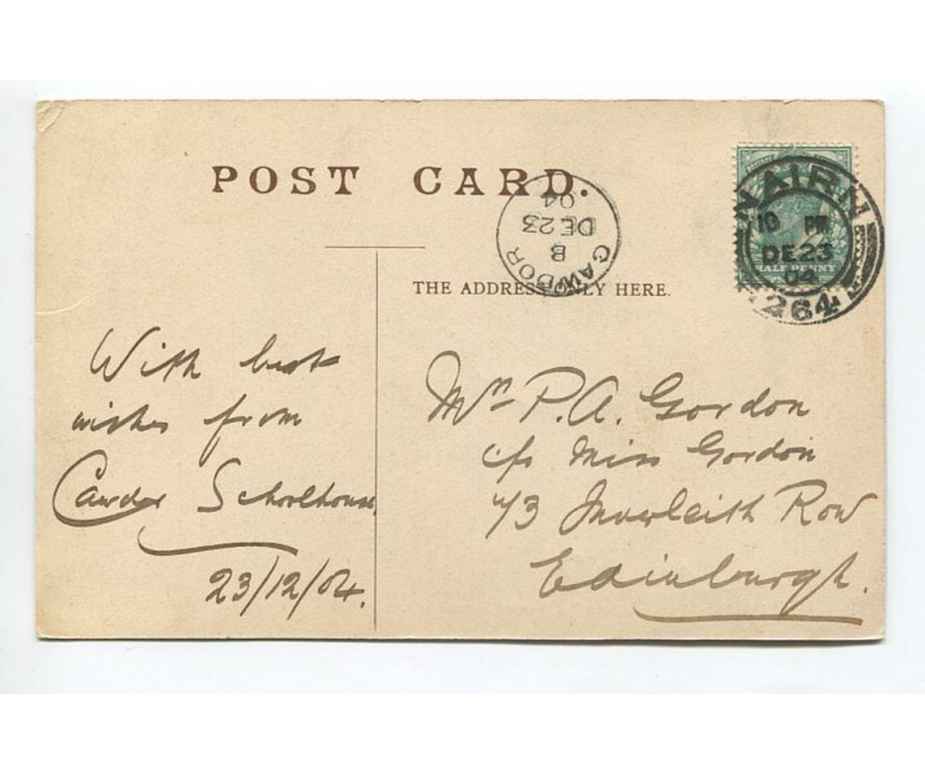 POST CARD.
CAWDOR
B
DE 23
04
NAIRN
10 PM
DE 23
04
264
HALF PENNY
THE ADDRESS ONLY HERE.
With best
wishes from
Cawdor Schoolhouse,
23/12/04.
Mrs P.A. Gordon
c/o Miss Gordon
Inverleith Row
Edinburgh.